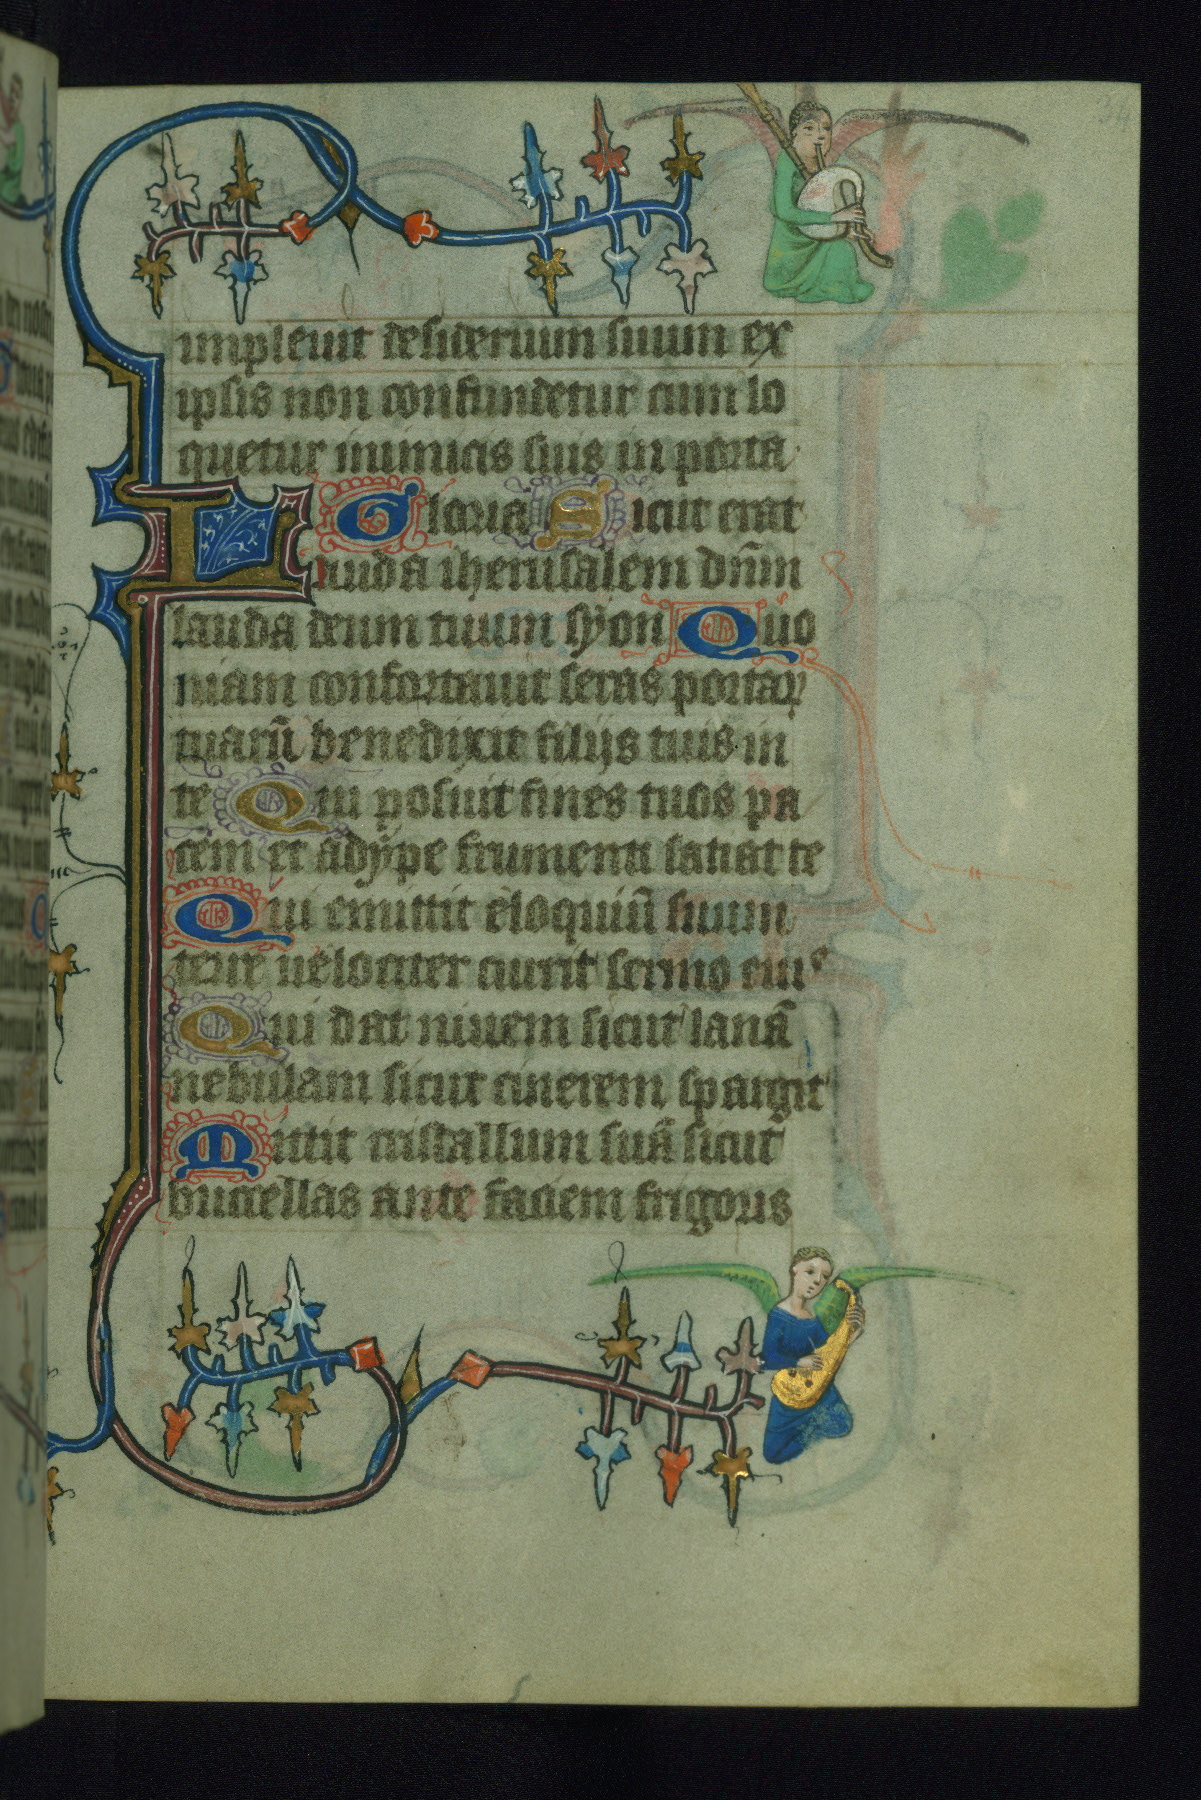 34
impleuit desiderium suum ex
ipsis non confundetur cum lo
quetur inimicis suis in porta
Gloria Sicut erat
Lauda iherusalem dn̄m
lauda deum tuum syon Quo
niam confortauit seras portaꝝ
tuarū benedixit filijs tuis in
te Qui posuit fines tuos pa
cem et adype frumenti satiat te
Qui emittit eloquiū suum
terre uelociter currit sermo eiuꝰ
Qui dat niuem sicut lanā
nebulam sicut cinerem spargit
Mittit cristallum suū sicut
buccellas ante faciem frigoris